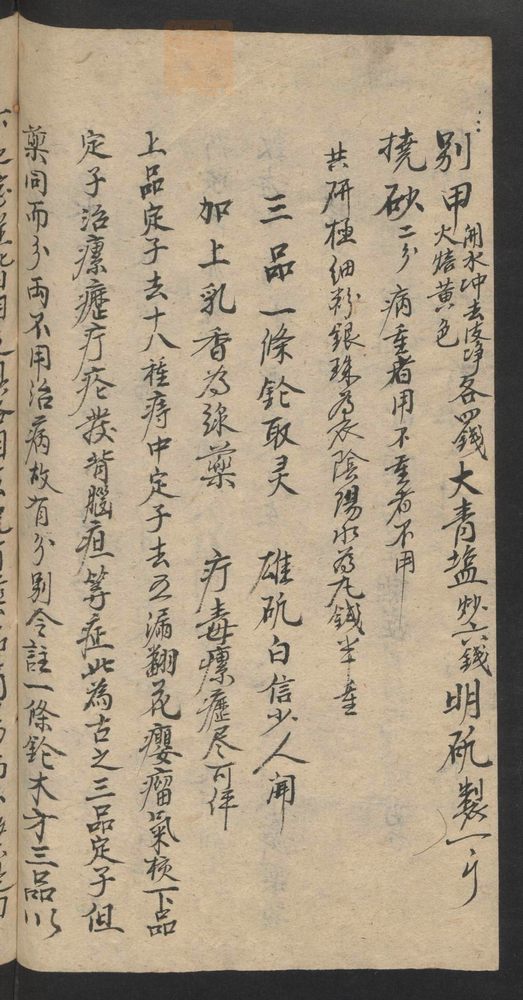 别甲 開水冲去净 火焙黄色 各四錢 大青塩炒六錢 明矾製一个
撓砂二分 病重者用不重者不用
共研極細粉銀珠為衣陰陽水為丸錢半重
三品一條鎗取灵 雄矾白信少人聞
加上乳香為線藥 疔毒瘰癧尽可伴
上品定子去十八種痔中定子去五漏翻花癭瘤氣核下品
定子治瘰癧疔疮發背腦疽等症此為古之三品定子但
藥同而分両不用治病故有分别今註一條鎗木方三品以